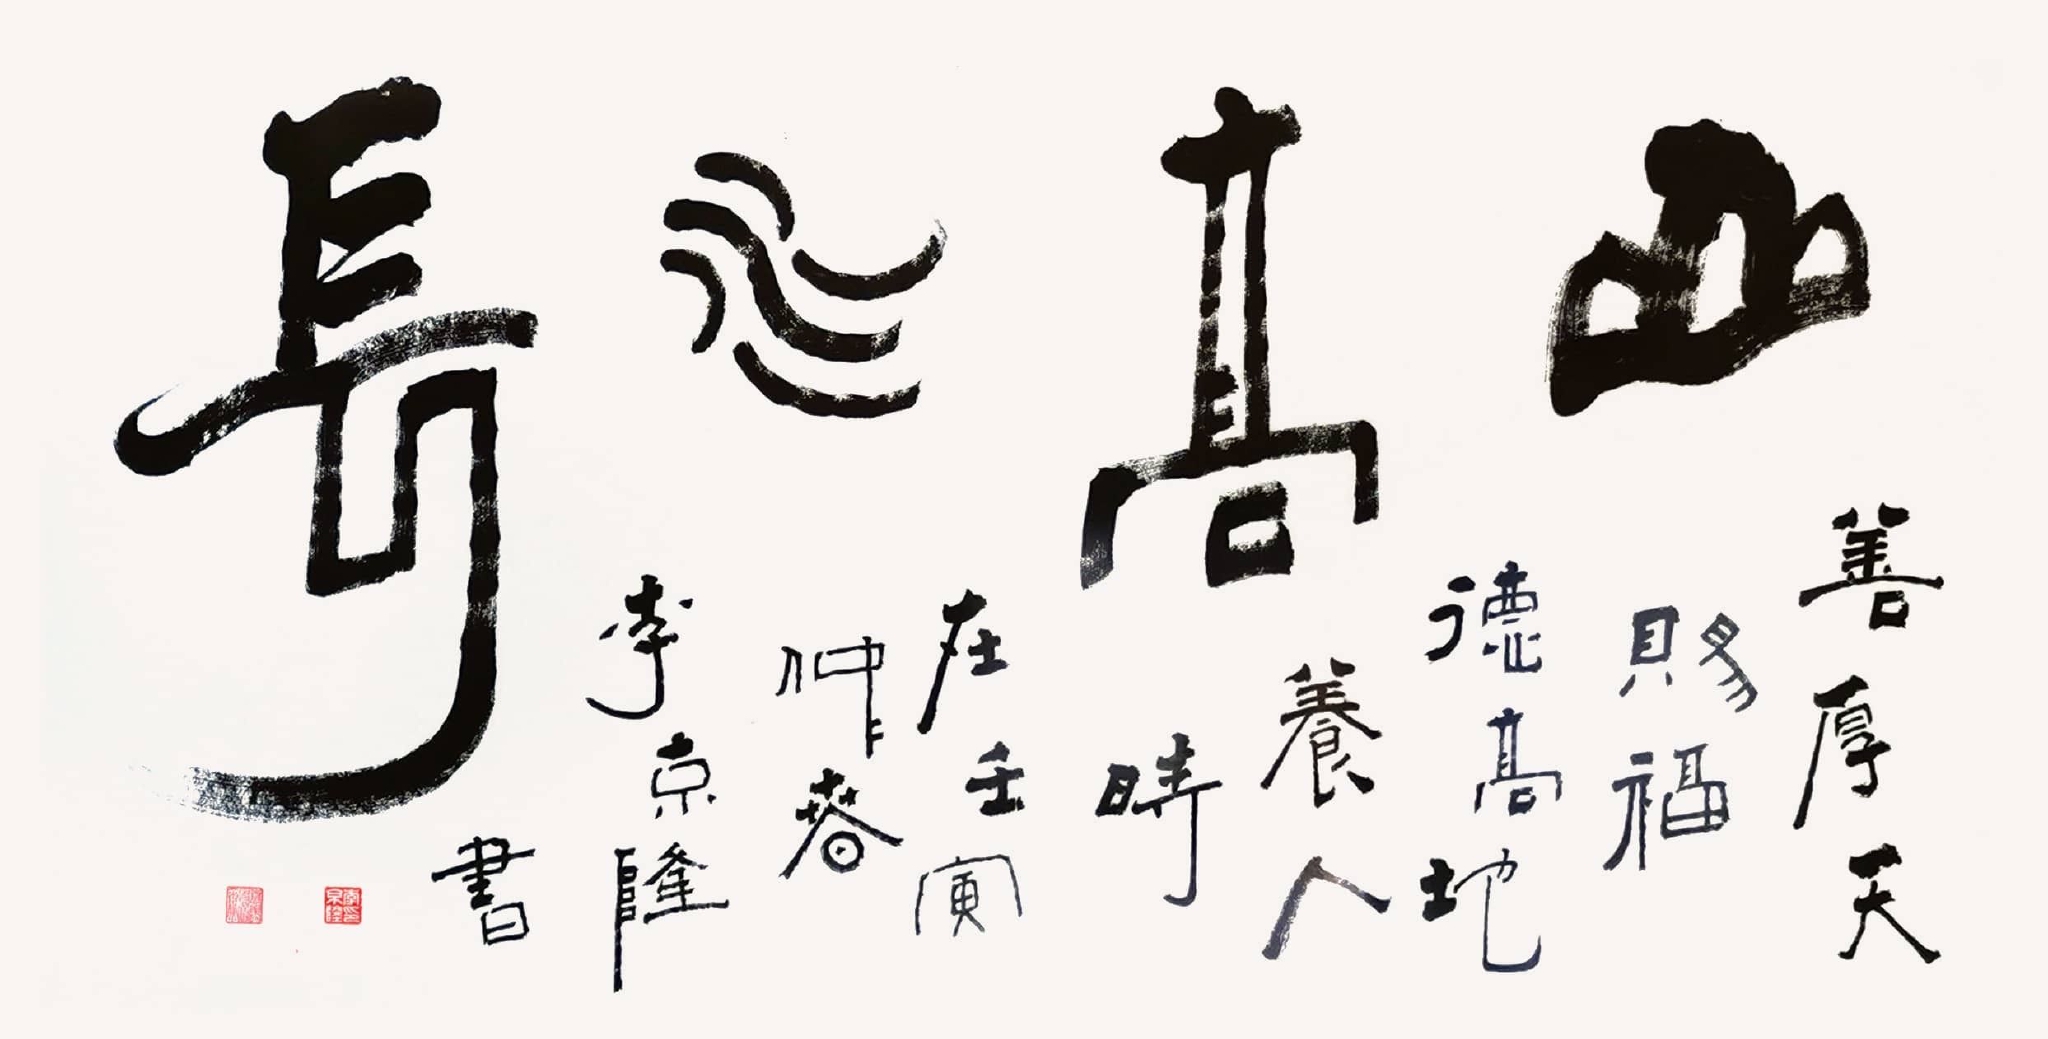 山高水長
善厚天
賜福
德高地
養人
時
在壬寅
仲春
李京隆
書